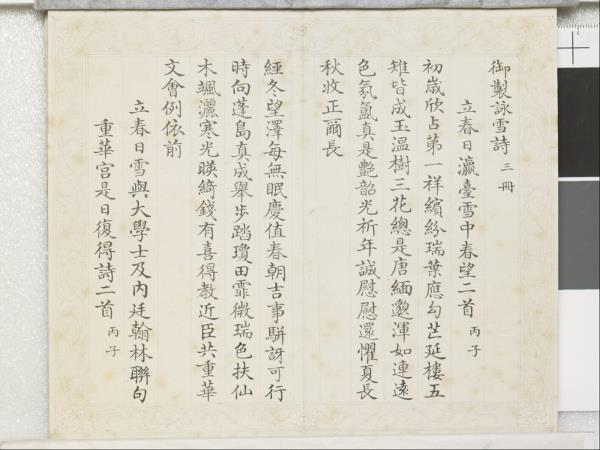 御製詠雪詩 三冊
立春日瀛臺雪中春望二首 丙子
初歲欣占第一祥繽紛瑞葉應勾芒延樓五
雉皆成玉温樹三花總是唐緬邈渾如連遠
色氛氲真是艷韶光祈年誠慰慰還懼夏長
秋收正爾長
經冬望澤每無眠慶值春朝吉事駢訝可行
時向蓬島真成舉步踏瓊田霏微瑞色扶仙
木颯灑寒光暎綺錢有喜得教近臣共重華
文會例依前
立春日雪與大學士及內廷翰林聯句
重華宮是日復得詩二首 丙子